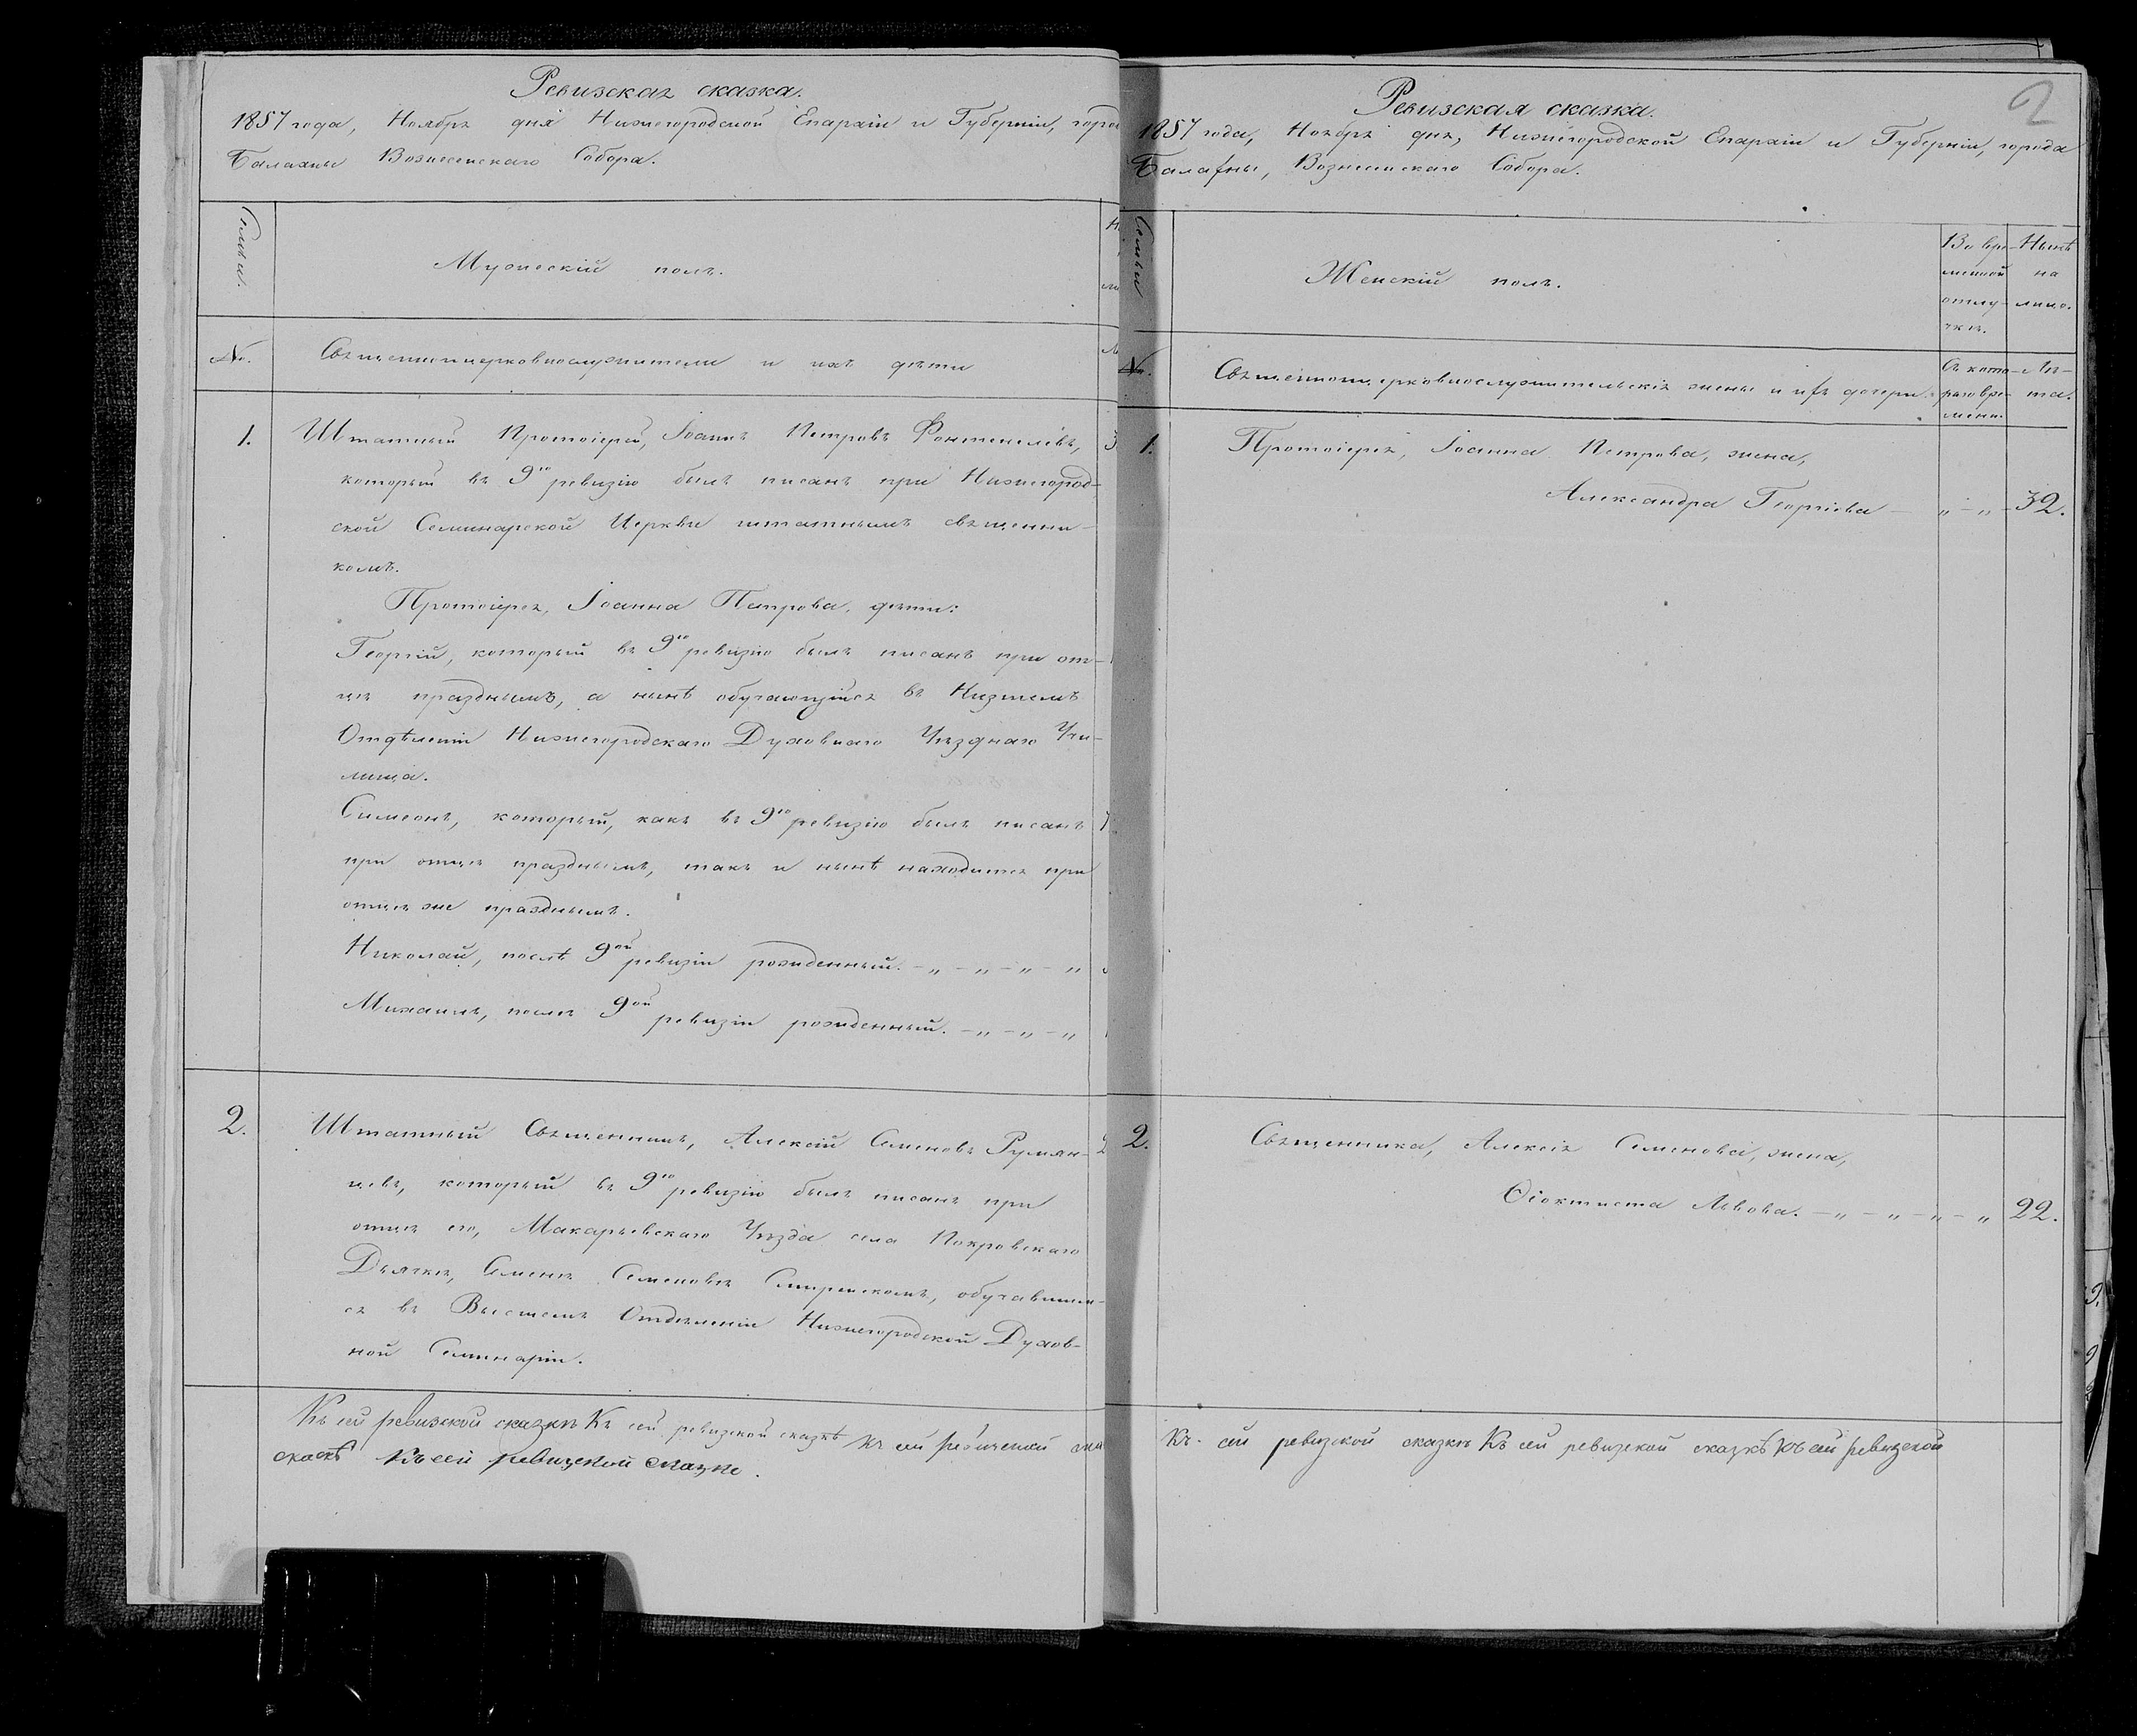 Ревизская сказка.
1857 года, Ноября дня Нижегородской Епархіи и Губерніи, горо
Балахны Вознесенскаго Собора.
Семьи.
Мужескій полъ.
№.
Священноцерковнослужители и ихъ дѣти
1.
Штатный Протоіерей, Іоаннъ Петровъ Фонтенелевъ,
который въ 9ю ревизію былъ писанъ при Нижегород-
ской Семинарской Церкви штатнымъ священни-
комъ.
Протоіерея, Іоанна Петрова, дѣти:
Георгій, который въ 9ю ревизію былъ писанъ при от-
цѣ празднымъ, а нынѣ обучающійся въ Низшемъ
Отдѣленіи Нижегородскаго Духовнаго Уѣзднаго Учи-
лища.
Симеонъ, который, какъ въ 9ю ревизію былъ писанъ
при отцѣ празднымъ, такъ и нынѣ находится при
отцѣ же празднымъ.
Николай, послѣ 9ой ревизіи рожденный. - „ - „ - „ - „
Михаилъ, послѣ 9ой ревизіи рожденный. - „ - „ - „
2.
Штатный Священникъ, Алексій Семеновъ Румян-
цевъ, который въ 9ю ревизію былъ писанъ при
отцѣ его, Макарьевскаго Уѣзда села Покровскаго
Дьячкѣ, Семенѣ Семеновѣ Смиренскомъ, обучавшим-
ся въ Высшемъ Отдѣленіи Нижегородской Духов-
ной Семинаріи.
Къ сей ревизской сказкѣ Къ сей ревизской сказкѣ Къ сей ревизской
Къ сей ревизской сказке.
2
Ревизская сказка.
1857 года, Ноября дня, Нижегородской Епархіи и Губерніи, города
Балахны, Вознесенскаго Собора.
Семьи
Женскій полъ.
Во вре-
менной
отлу-
чкѣ.
Нынѣ
на
лицо.
№.
Священноцерковнослужительскія жены и ихъ дочери.
Съ кото-
раго вре-
мени.
Лѣ-
та.
1.
Протоіерея, Іоанна Петрова, жена,
Александра Георгіева — „ - „ - 32.
2.
Священника, Алексія Семенова, жена,
Ѳіоктиста Львова. - „ - „ - „ - „ 22.
Къ сей ревизской сказкѣ Къ сей ревизской сказкѣ Къ сей ревизской